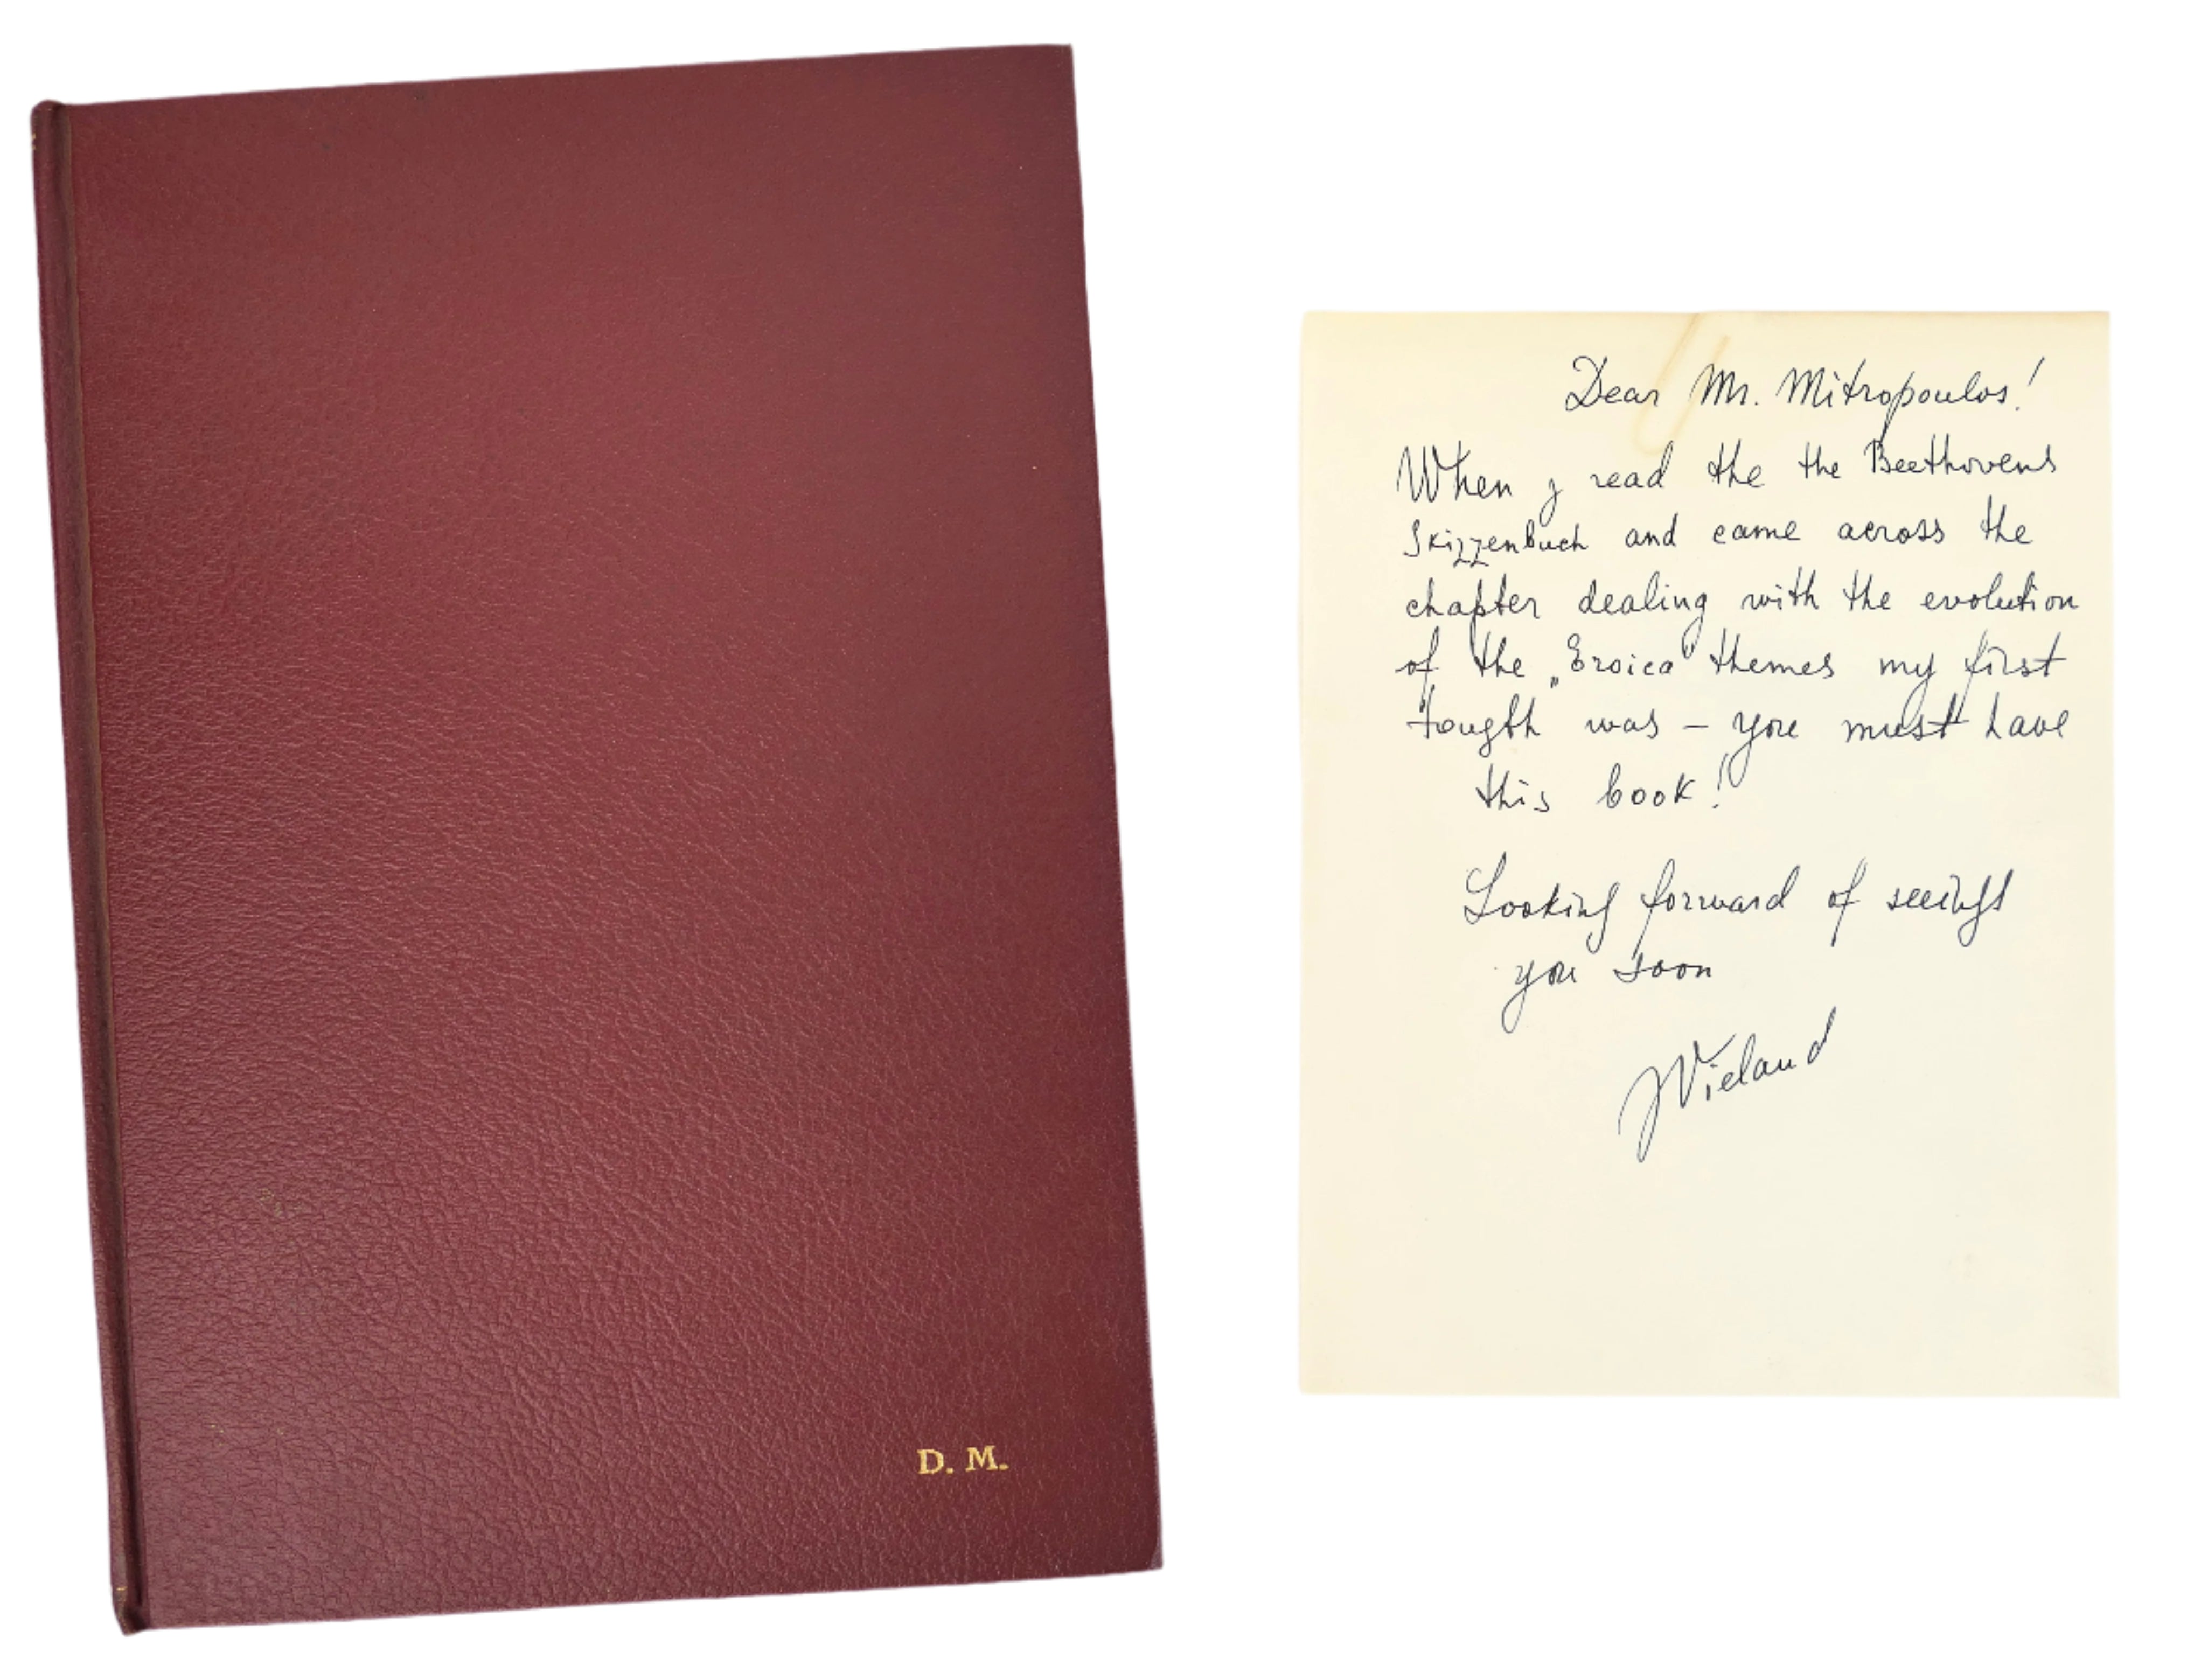 D. M.
Dear Mr. Mitropoulos!
When j read the the Beethovens
Skizzenbuch and came across the
chapter dealing with the evolution
of the „Eroica" themes my first
tougth was – you must have
this book!
Looking forward of seeing
you soon
Wieland